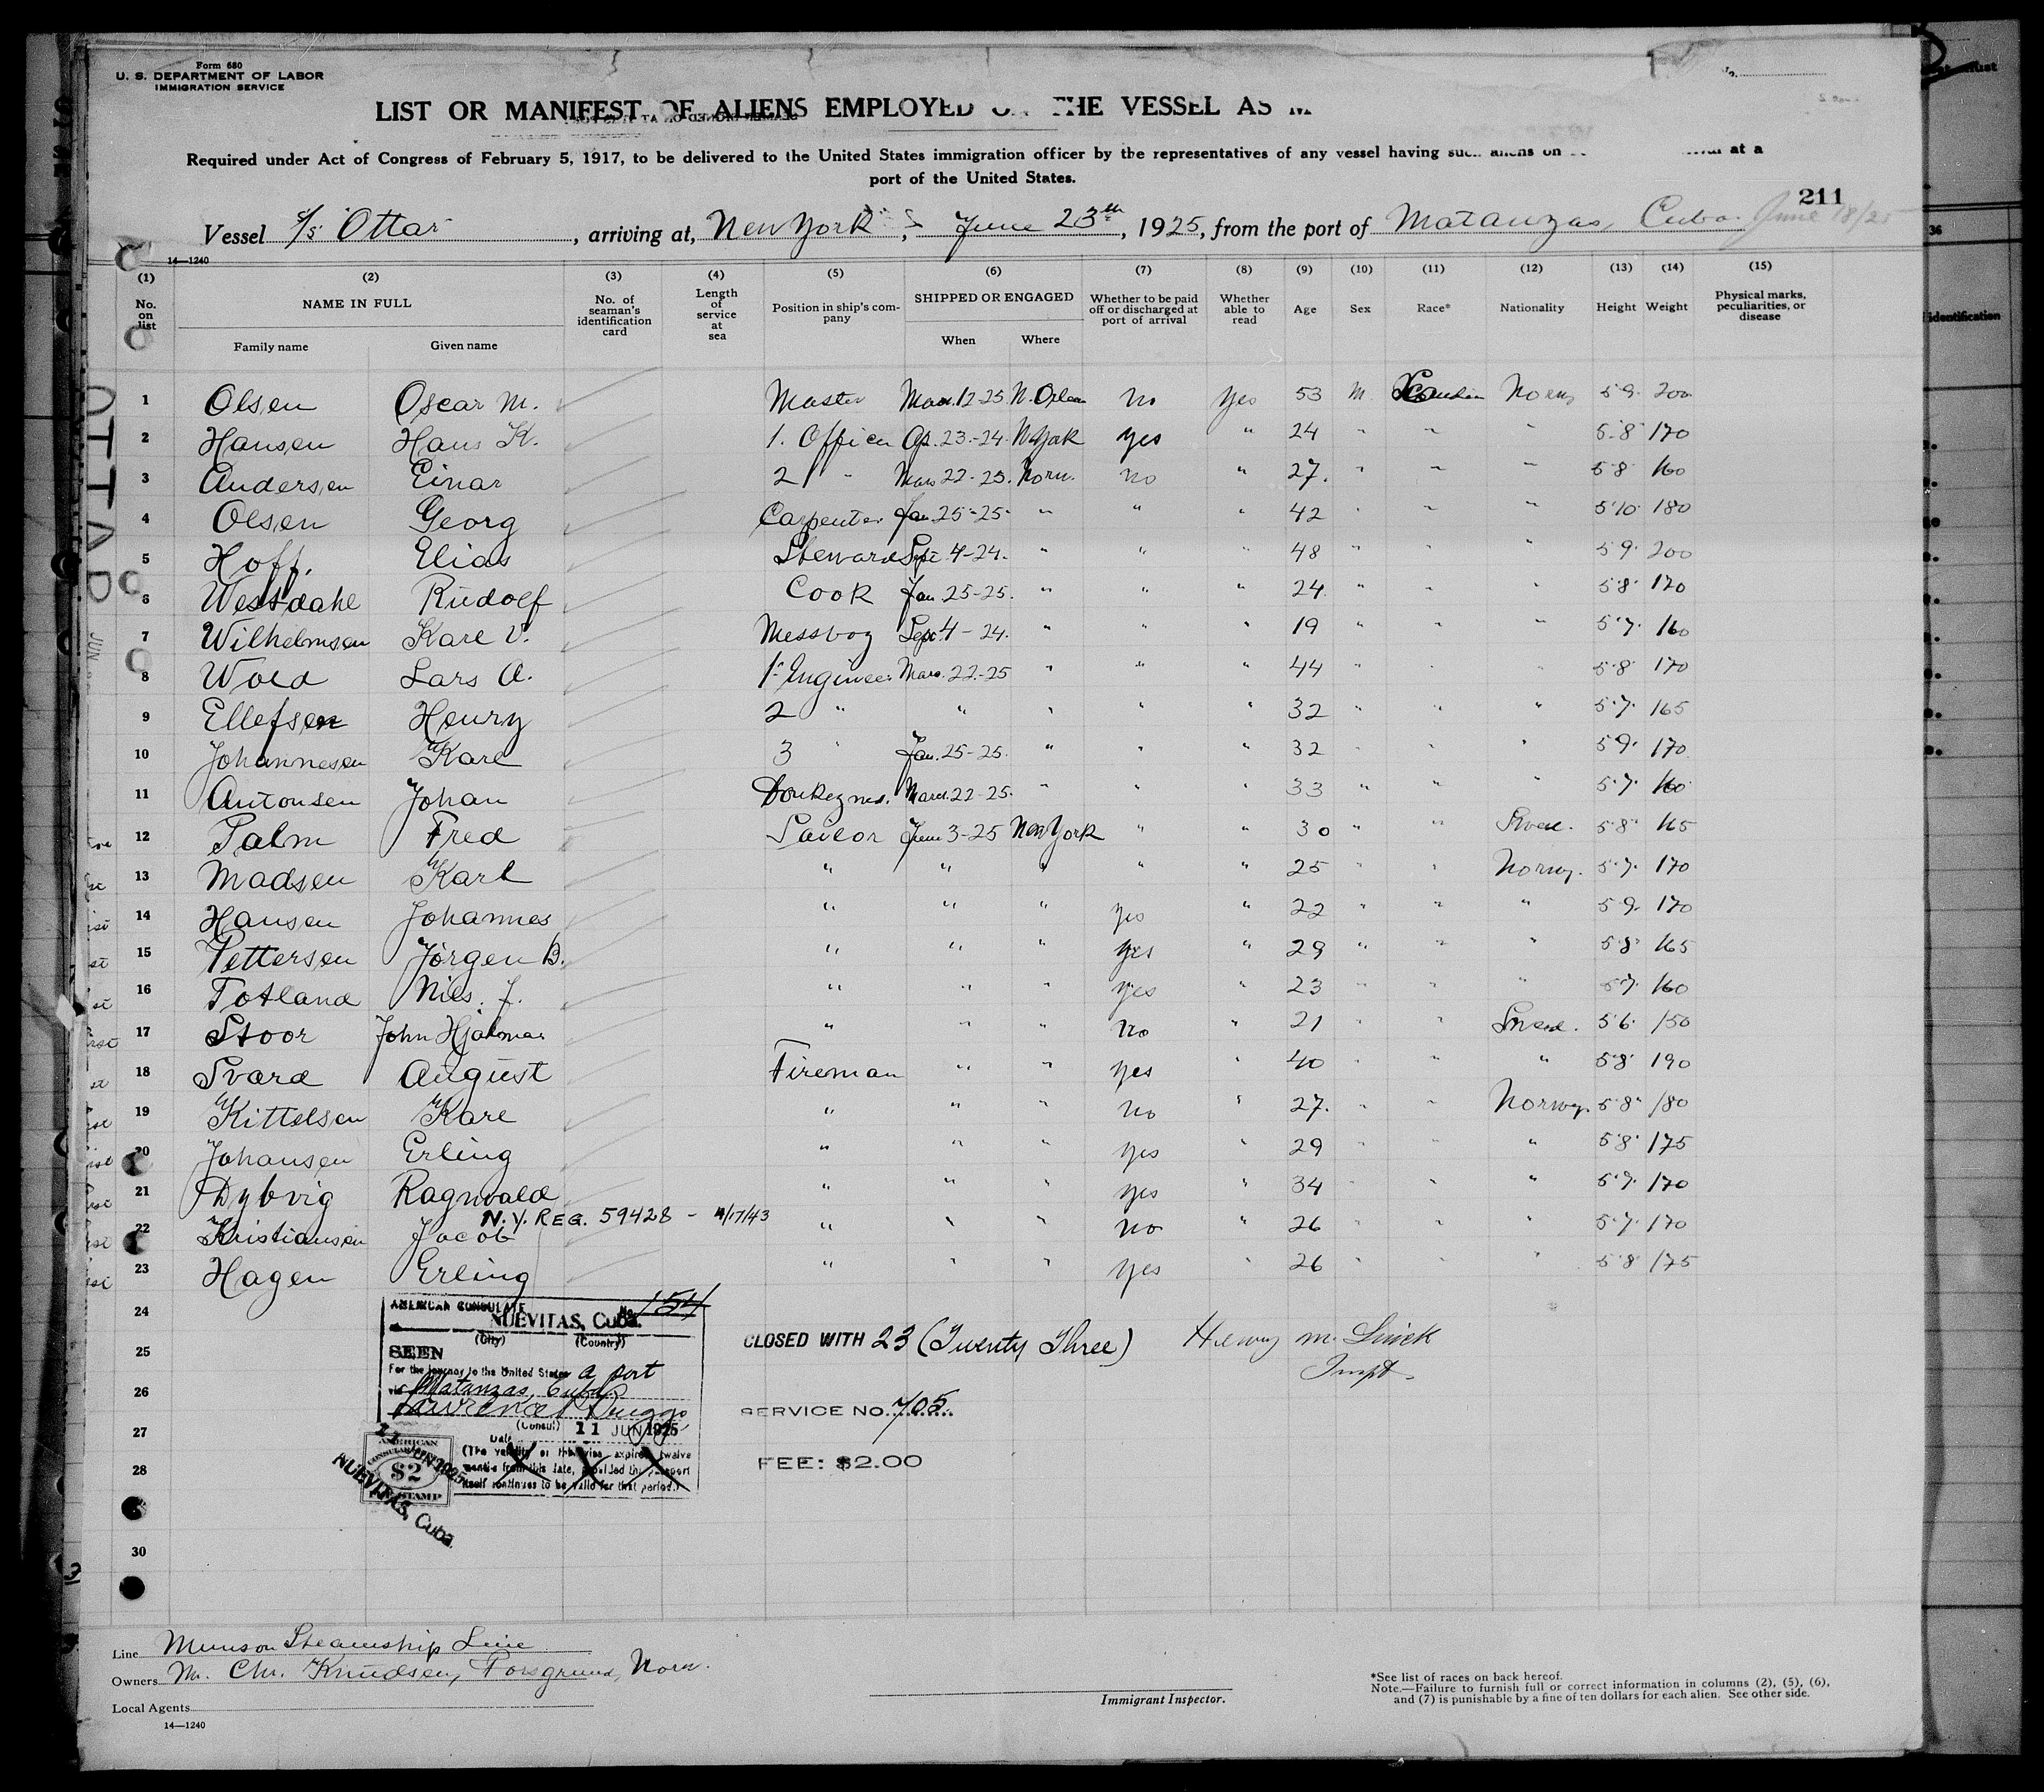 Form 680
U. S. DEPARTMENT OF LABOR
IMMIGRATION SERVICE
LIST OR MANIFEST OF ALIENS EMPLOYED THE VESSEL AS
Required under Act of Congress of February 5, 1917, to be delivered to the United States immigration officer by the representatives of any vessel having such aliens on at a
port of the United States.
211
Vessel S/S Ottar, arriving at, New York, June 23th, 1925, from the port of Matanzas, Cuba. June 18/25
14—1240
(1) (2) (3) (4) (5) (6) (7) (8) (9) (10) (11) (12) (13) (14) (15)
No. on list NAME IN FULL No. of seaman's identification card Length of service at sea Position in ship's company SHIPPED OR ENGAGED Whether to be paid off or discharged at port of arrival Whether able to read Age Sex Race* Nationality Height Weight Physical marks, peculiarities, or disease
Family name Given name When Where
1 Olsen Oscar M. Master Mar 12-25 N. Orlean no yes 53 M. Scandin Norw 5 9 200
2 Hansen Hans K. 1. Officer Ap. 23-24 N. York yes " 24 " " " 5 8 170
3 Andersen Einar 2 " Mars 22-25. Norw. no " 27. " " " 5 8 160
4 Olsen Georg Carpenter Jan 25-25 " " " 42 " " " 5 10 180
5 Hoff. Elias Steward Sept 4-24. " " " 48 " " " 5 9 200
6 Westdahl Rudolf Cook Jan 25-25. " " " 24 " " " 5 8 170
7 Wilhelmsen Kare V. Messboy Sept 4-24. " " " 19 " " " 5 7 160
8 Wold Lars A. 1 Engineer Mars. 22-25 " " " 44 " " " 5 8 170
9 Ellefsen Henry 2 " " " " " 32 " " " 5 7 165
10 Johannesen Kare 3 " Jan. 25-25. " " " 32 " " " 5 9 170
11 Antonsen Johan Donkeyma. Mars 22-25. " " " 33 " " " 5 7 160
12 Palm Fred Sailor June 3-25 New York " " 30 " " Swed. 5 8 165
13 Madsen Karl " " " " " 25 " " Norwg. 5 7 170
14 Hansen Johannes " " " yes " 22 " " " 5 9 170
15 Pettersen Jörgen B. " " " yes " 29 " " " 5 8 165
16 Totland Nils. J. " " " yes " 23 " " " 5 7 160
17 Stoor John Hjalmar " " " no " 21 " " Swed. 5 6 150
18 Svard August Fireman " " yes " 40 " " " 5 8 190
19 Kittelsen Kare " " " no " 27. " " Norwg. 5 8 180
20 Johansen Erling " " " yes " 29 " " " 5 8 175
21 Dybvig Ragnvald " " " yes " 34 " " " 5 7 170
N.Y. REG. 59428 - 4/17/43
22 Kristiansen Jacob " " " no " 26 " " " 5 7 170
23 Hagen Erling " " " yes " 26 " " " 5 8 175
24
25
26
27
28
30
AMERICAN CONSULATE No. 154
NUEVITAS, Cuba.
(City) (Country)
SEEN
For the journey to the United States a port
via Matanzas, Cuba
Lawrence P. Briggs
(Consul)
Date 11 JUN 1925
(The validity of this visa expires twelve
months from this date, provided the passport
itself continues to be valid for that period.)
AMERICAN
CONSULAR
$2
FEE STAMP
NUEVITAS, Cuba.
CLOSED WITH 23 (Twenty Three)
Henry M. Linick
Inspt.
SERVICE NO. 705
FEE: $2.00
OTTAR
JUN
identification
36
Line Munson Steamship Line
Owners Mr. Chr. Knudsen, Porsgrund, Norw.
Local Agents
14—1240
Immigrant Inspector.
*See list of races on back hereof.
Note.—Failure to furnish full or correct information in columns (2), (5), (6),
and (7) is punishable by a fine of ten dollars for each alien. See other side.